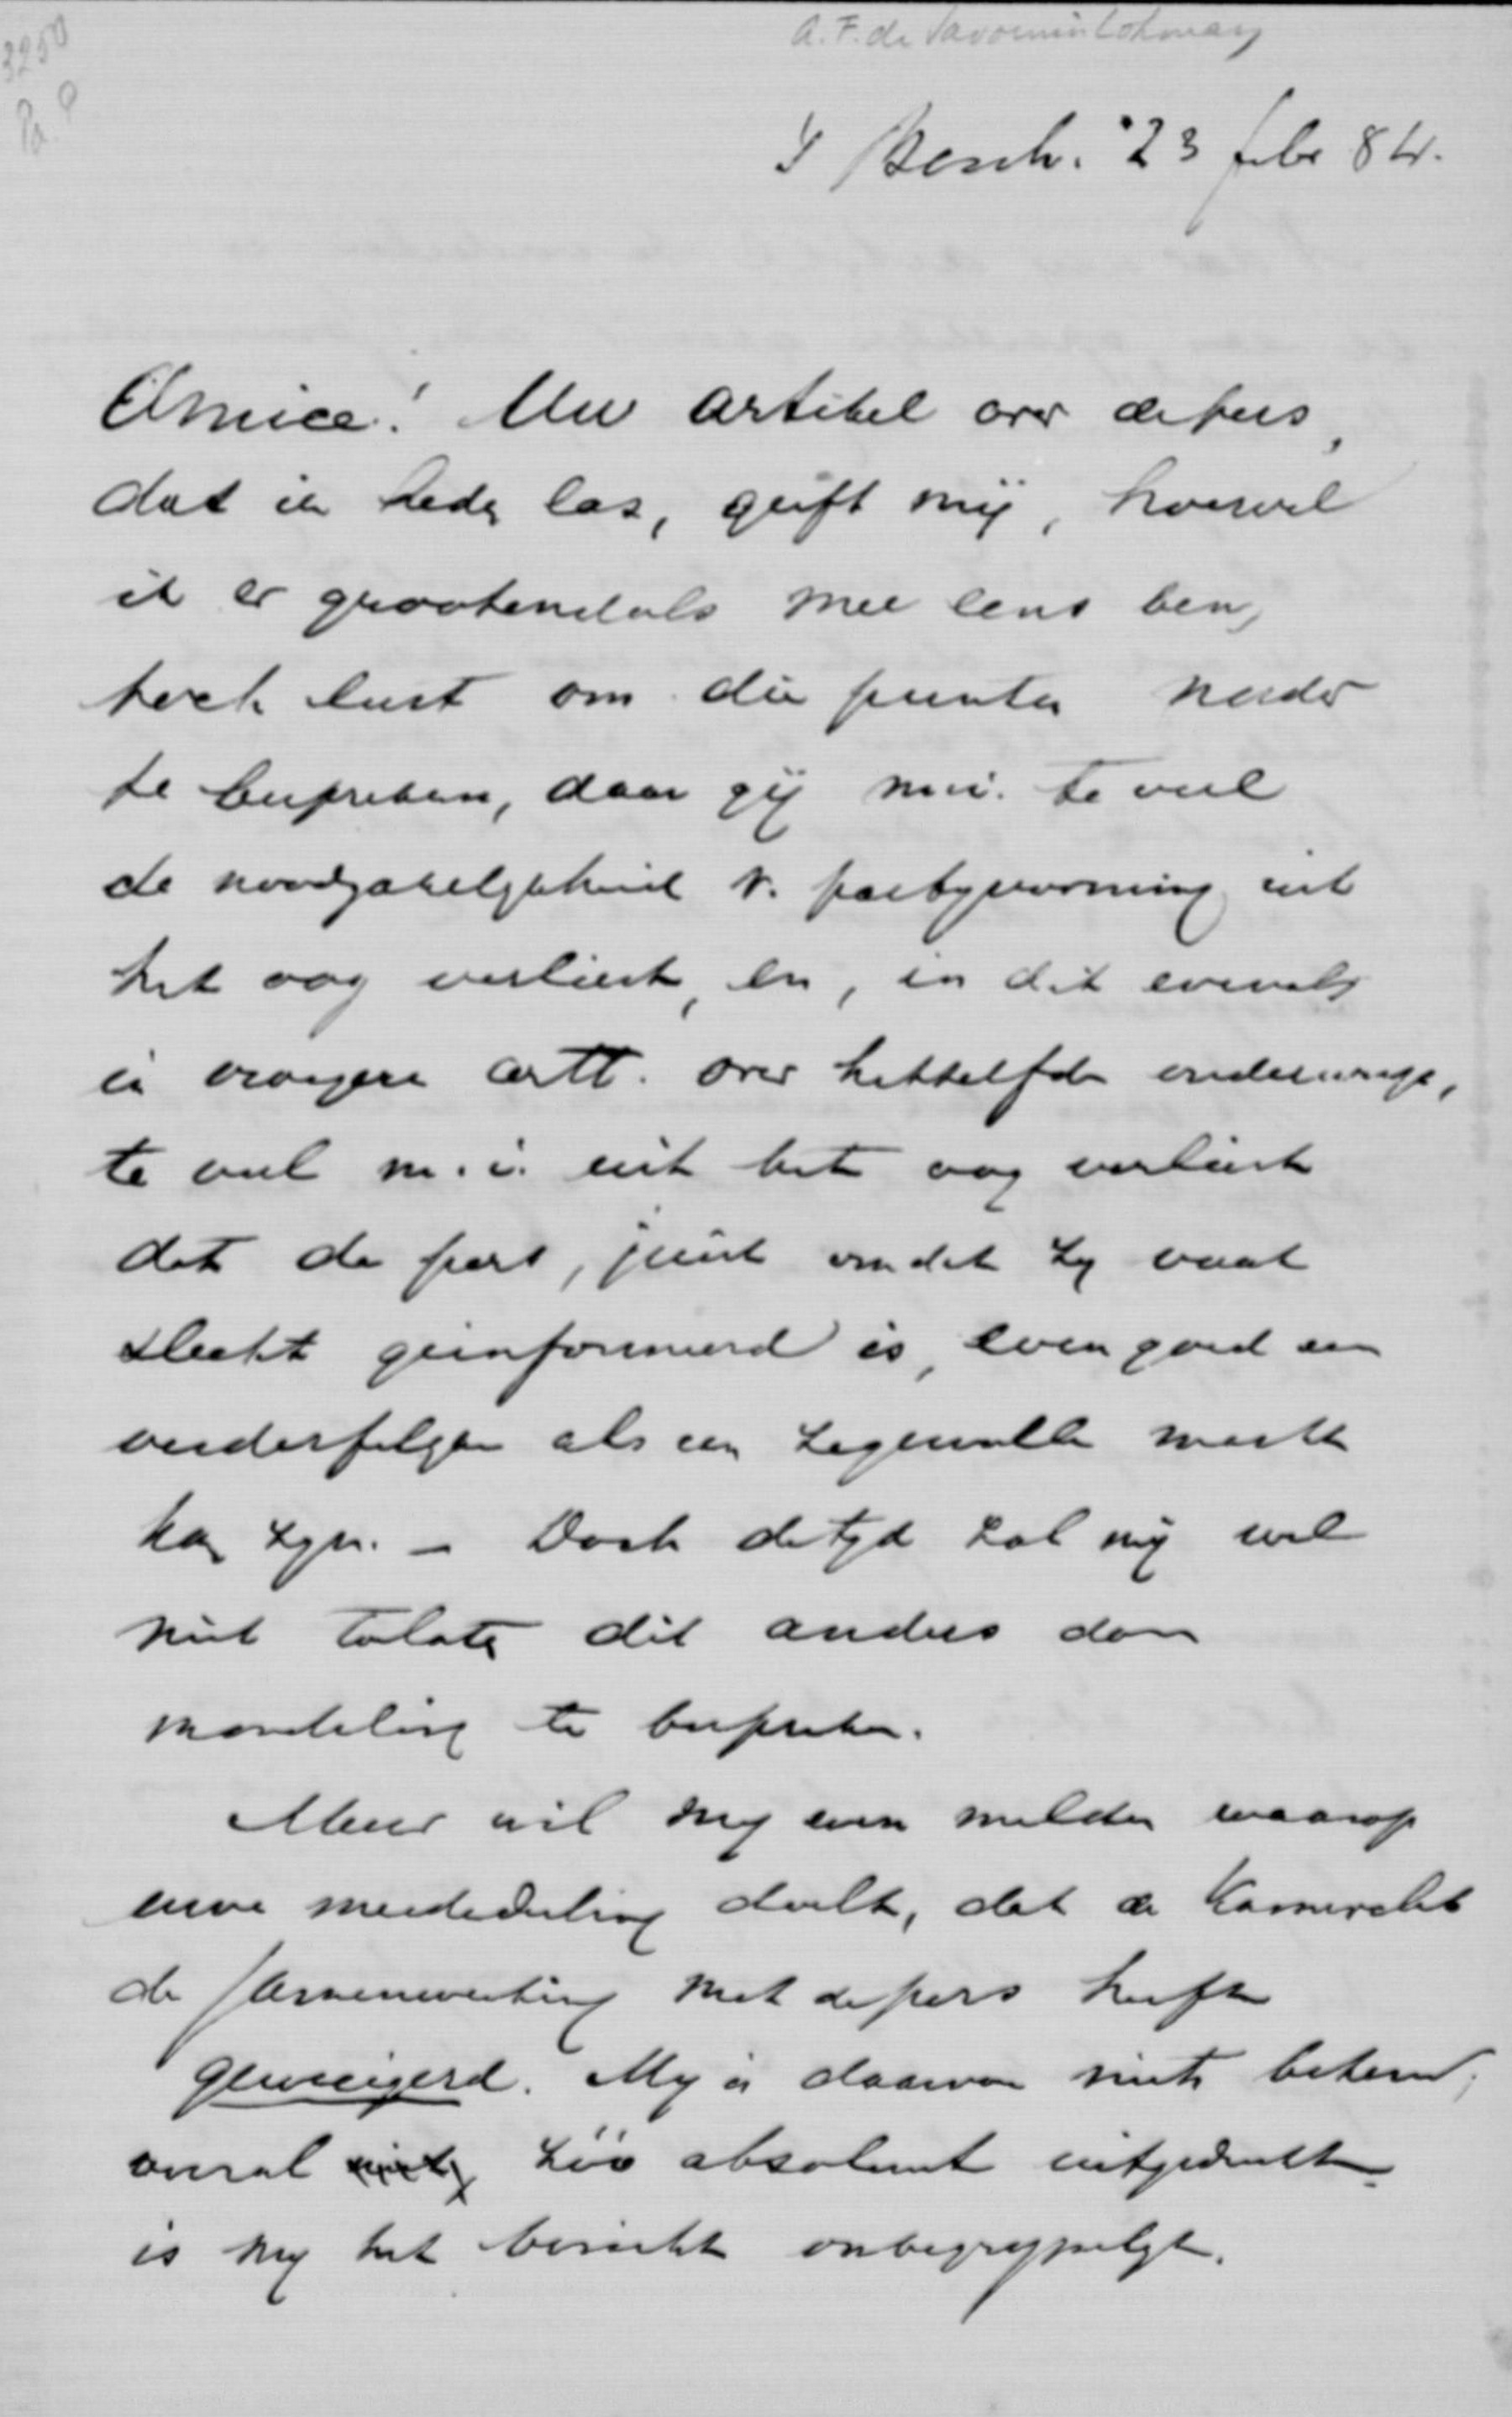 3250
A.F. de Savornin Lohman
's Bosch. 23 febr 84.
Amice! Uw artikel over de pers,
dat ik heden las, geeft mij, hoewel
ik er grootendeels mee eens ben,
toch lust om die punten nader
te bespreken, daar gij m.i. te veel
de noodzakelijkheid v. partijvorming uit
het oog verliest, en, in dit evenals
in vroegere artt. over hetzelfde onderwerp,
te veel m.i. uit het oog verliest
dat de pers, juist omdat zij vaak
slecht geinformeerd is, even goed een
als een zegenvolle macht
kan zijn. – Doch de tijd zal mij wel
niet toelaten dit anders dan
mondeling te bespreken.
Maar wil mij even melden waarop
uwe mededeeling doelt, dat de Kamerclub
de samenwerking met de pers heeft
geweigerd. Mij is daarvan niets bekend;
vooral niets zóó absoluut uitgedrukt
is mij het bericht onbegrijpelijk.